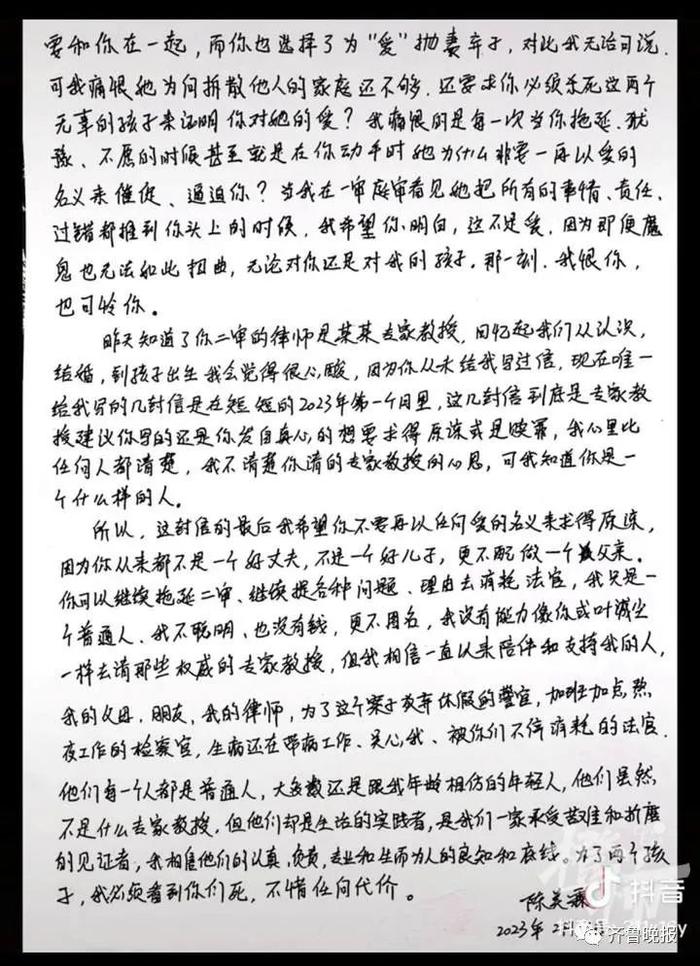 要和你在一起，而你也选择了为“爱”抛妻弃子，对此我无话可说．
可我痛恨她为何拆散他人的家庭还不够．还要求你必须杀死这两个
无辜的孩子来证明你对她的爱？我痛恨的是每一次当你拖延、犹
豫、不愿的时候甚至就是在你动手时她为什么非要一再以爱的
名义来催促、逼迫你？当我在一审庭审看见她把所有的事情、责任、
过错都推到你头上的时候，我希望你明白，这不是爱．因为即便魔
鬼也无法如此扭曲，无论对你还是对我的孩子．那一刻．我恨你，
也可怜你。
昨天知道了你二审的律师是某某专家教授，回忆起我们从认识，
结婚，到孩子出生我会觉得很心酸，因为你从未给我写过信，现在唯一
给我写的几封信是在短短的2023年第一个月里，这几封信到底是专家教
授建议你写的还是你发自真心的想要求得原谅或是赎罪，我心里比
任何人都清楚，我不清楚你请的专家教授的心思，可我知道你是一
个什么样的人。
所以，这封信的最后我希望你不要再以任何爱的名义来求得原谅，
因为你从来都不是一个好丈夫，不是一个好儿子，更不配做一个父亲。
你可以继续拖延二审、继续提各种问题、理由去消耗法官，我只是一
个普通人、我不聪明、也没有钱，更不用名，我没有能力像你或叶诚尘
一样去请那些权威的专家教授，但我相信一直以来陪伴和支持我的人，
我的父母，朋友，我的律师，为了这个案子放弃休假的警官，加班加点熬
夜工作的检察官，生病还在带病工作、关心我、被你们不停消耗的法官．
他们每一个人都是普通人，大多数还是跟我年龄相仿的年轻人，他们虽然
不是什么专家教授，但他们却是生活的实践者，是我们一家承受苦难和折磨
的见证者，我相信他们的认真，负责，专业和生而为人的良知和底线。为了两个孩
子，我必须看到你们死，不惜任何代价。
陈美霖
2023年2月
抖音
齐鲁晚报